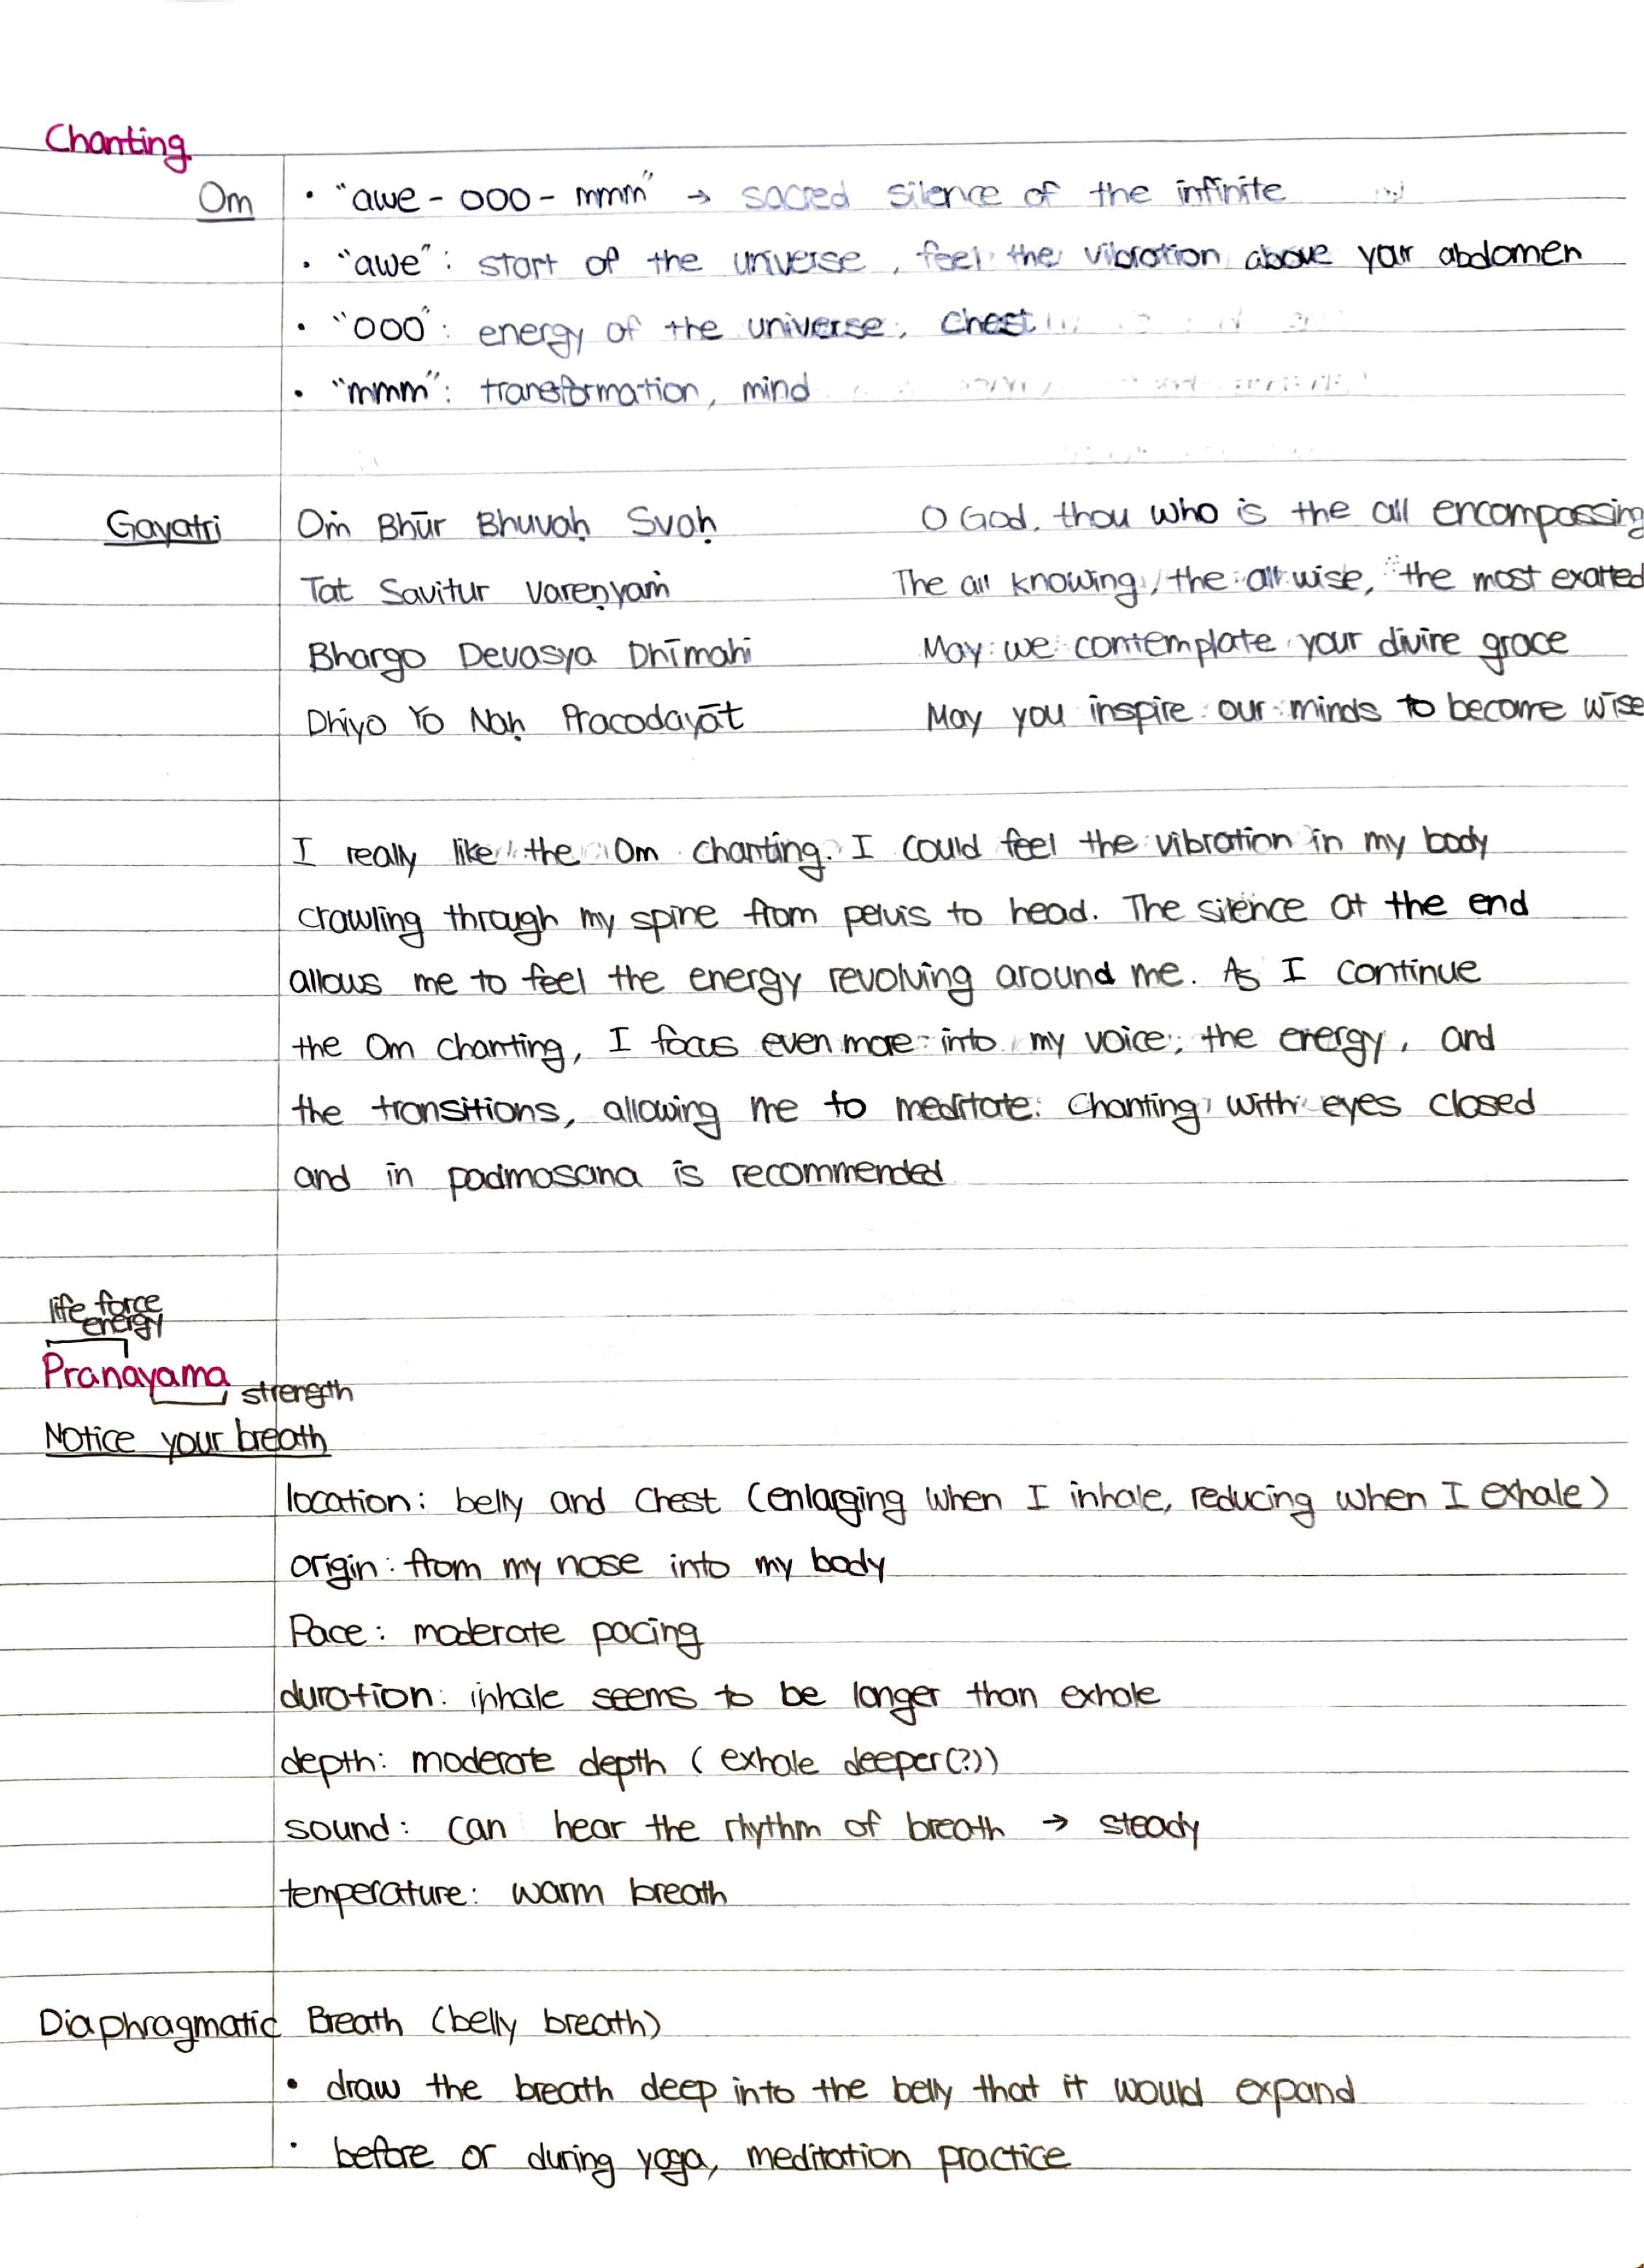 Chanting
Om • "awe - ooo - mmm" → sacred silence of the infinite
• "awe": start of the universe, feel the vibration above your abdomen
• "ooo": energy of the universe, chest
• "mmm": transformation, mind
Gayatri Oṁ Bhūr Bhuvaḥ Svaḥ O God, thou who is the all encompassing
Tat Savitur Vareṇyaṁ The all knowing, the all wise, the most exalted
Bhargo Devasya Dhīmahi May we contemplate your divine grace
Dhiyo Yo Naḥ Pracodayāt May you inspire our minds to become wise
I really like the Om chanting. I could feel the vibration in my body
crawling through my spine from pelvis to head. The silence at the end
allows me to feel the energy revolving around me. As I continue
the Om chanting, I focus even more into my voice, the energy, and
the transitions, allowing me to meditate. Chanting with eyes closed
and in padmasana is recommended
life force
energy
Pranayama strength
Notice your breath
location: belly and chest (enlarging when I inhale, reducing when I exhale)
origin: from my nose into my body
Pace: moderate pacing
duration: inhale seems to be longer than exhale
depth: moderate depth (exhale deeper(?))
sound: can hear the rhythm of breath → steady
temperature: warm breath
Diaphragmatic Breath (belly breath)
• draw the breath deep into the belly that it would expand
• before or during yoga, meditation practice